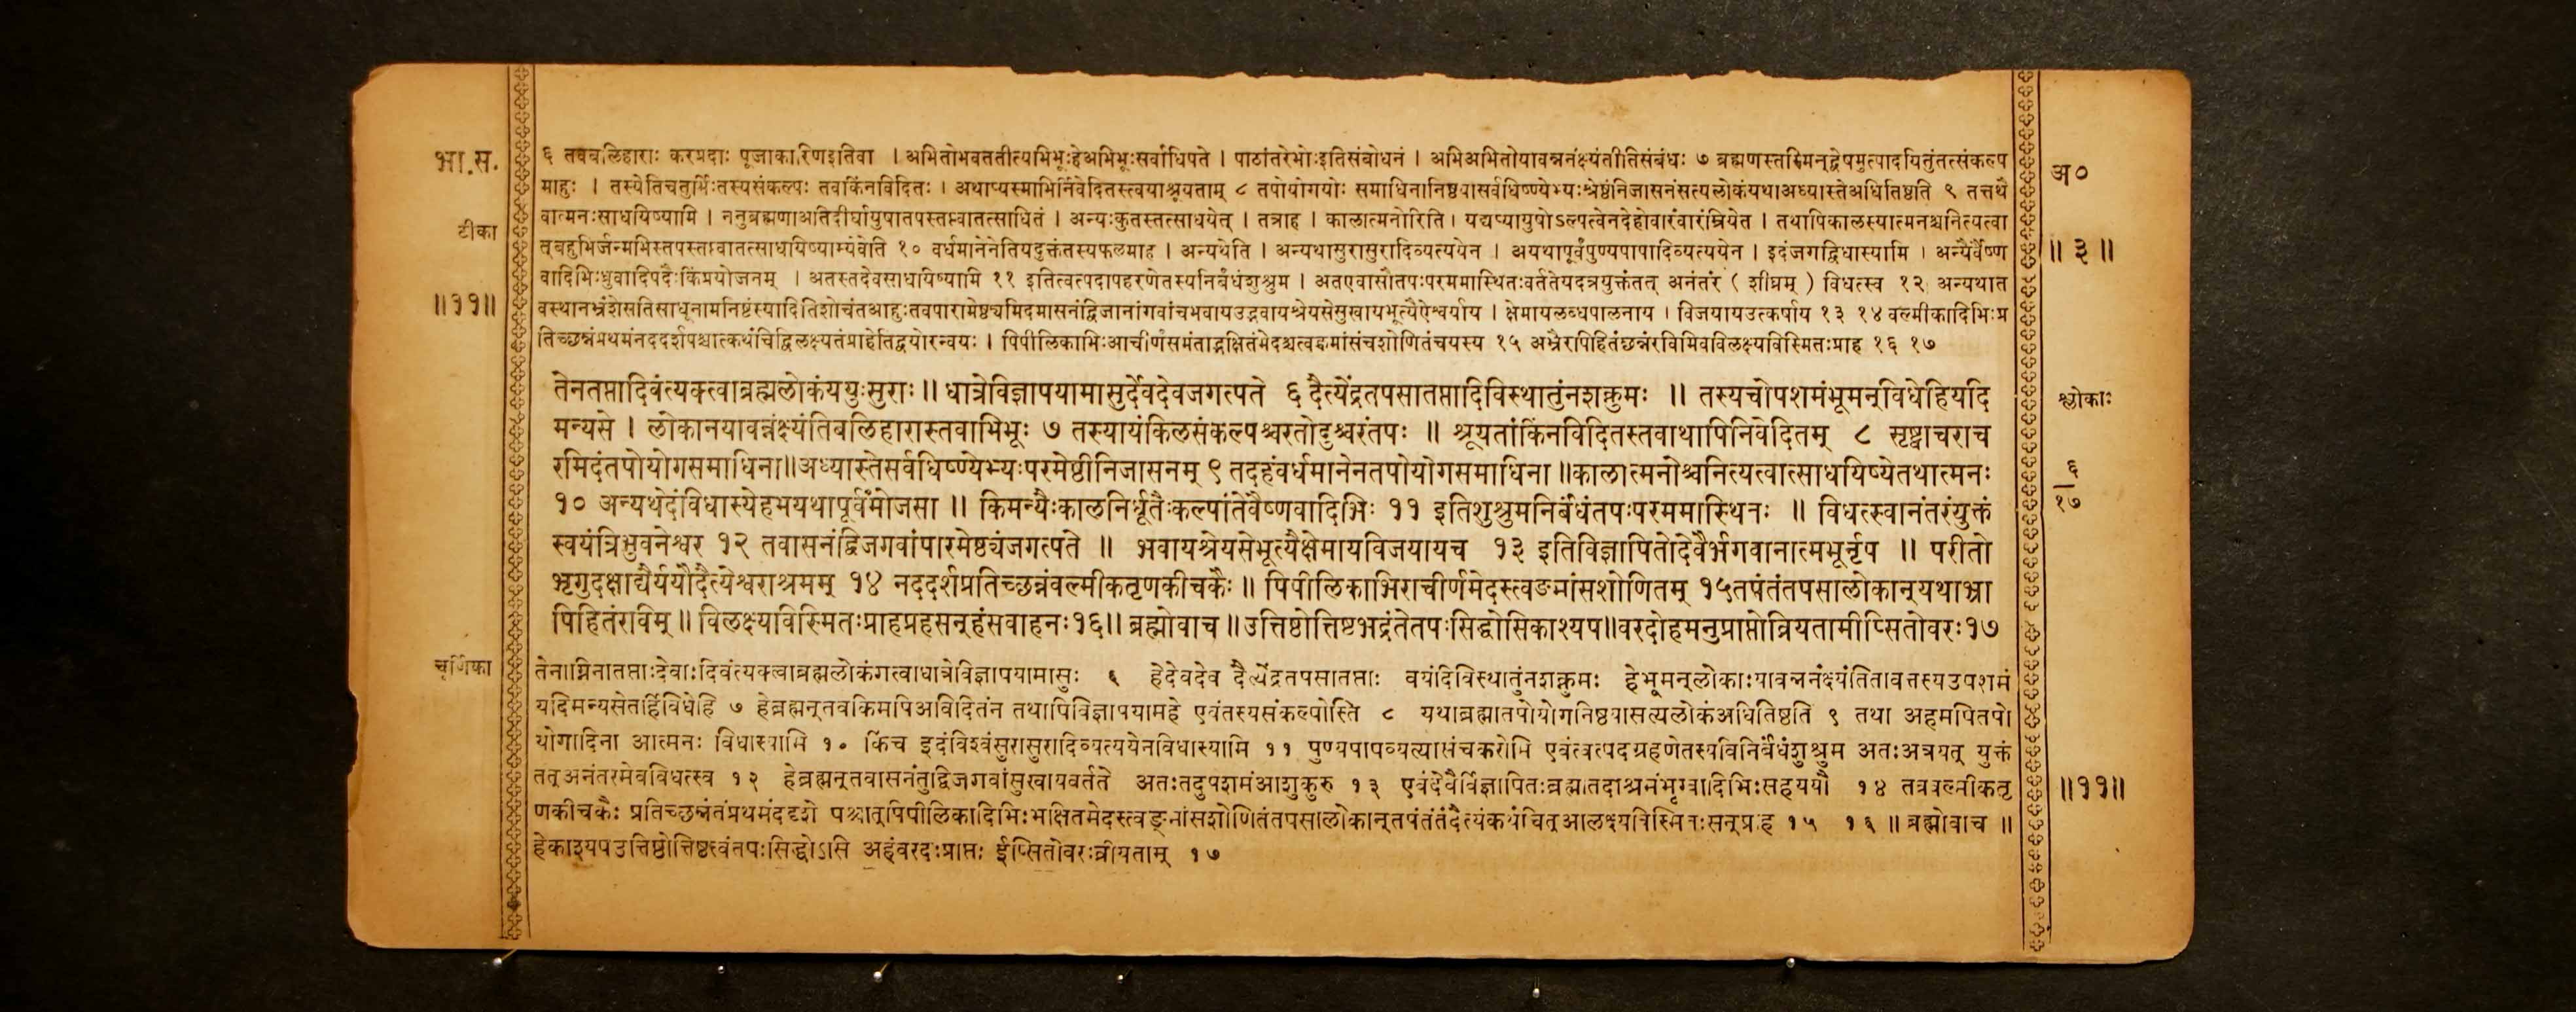 भा.स.
टीका
॥११॥
६ तवबलिहाराः करप्रदाः पूजाकारिणइतिवा । अभितोभवततीत्यभिभूःहेअभिभूःसर्वाधिपते । पाठांतरेभोःइतिसंबोधनं । अभिअभितोयावन्ननंक्ष्यंतीतिसंबंधः ७ ब्रह्मणस्तस्मिन्द्वेषमुत्पादयितुंतत्संकल्प
माहुः । तस्येतिचतुर्भिःतस्यसंकल्पः तवकिंनविदितः । अथाप्यस्माभिर्निवेदितस्त्वयाश्रूयताम् ८ तपोयोगयोः समाधिनानिष्ठयासर्वधिष्ण्येभ्यःश्रेष्ठंनिजासनंसत्यलोकंयथाअध्यास्तेअधितिष्ठति ९ तत्तथै
वात्मनःसाधयिष्यामि । ननुब्रह्मणाअतिदीर्घायुषातपस्तप्त्वातत्साधितं । अन्यःकुतस्तत्साधयेत् । तत्राह । कालात्मनोरिति । यद्यप्यायुषोऽल्पत्वेनदेहोवारंवारंम्रियेत । तथापिकालस्यात्मनश्चनित्यत्वा
त्बहुभिर्जन्मभिस्तपस्तप्त्वातत्साधयिष्याम्येवेति १० वर्धमानेनेतियदुक्तंतस्यफलमाह । अन्यथेति । अन्यथासुरासुरादिव्यत्ययेन । अयथापूर्वंपुण्यपापादिव्यत्ययेन । इदंजगद्विधास्यामि । अन्यैर्वैष्ण
वादिभिःध्रुवादिपदैःकिंप्रयोजनम् । अतस्तदेवसाधयिष्यामि ११ इतित्वत्पदापहरणेतस्यनिर्बंधंशुश्रुम । अतएवासौतपःपरममास्थितःवर्ततेयदत्रयुक्तंतत् अनंतरं ( शीघ्रम् ) विधत्स्व १२ अन्यथात
वस्थानभ्रंशेसतिसाधूनामनिष्टंस्यादितिशोचंतआहुःतवपारमेष्ठ्यमिदमासनंद्विजानांगवांचभवायउद्भवायश्रेयसेसुखायभूत्यैऐश्वर्याय । क्षेमायलब्धपालनाय । विजयायउत्कर्षाय १३ १४ वल्मीकादिभिःप्र
तिच्छन्नंप्रथमंनददर्शपश्चात्कथंचिद्विलक्ष्यतंप्राहेतिद्वयोरन्वयः । पिपीलिकाभिःआचीर्णंसमंताद्भक्षितंमेदश्चत्वङ्मांसंचशोणितंचयस्य १५ अभ्रैरपिहितंछन्नंरविमिवविलक्ष्यविस्मितःप्राह १६ १७
अ०
॥ ३ ॥
तेनतप्तादिवंत्यक्त्वाब्रह्मलोकंययुःसुराः ॥ धात्रेविज्ञापयामासुर्देवदेवजगत्पते ६ दैत्येंद्रतपसातप्तादिविस्थातुंनशक्नुमः ॥ तस्यचोपशमंभूमन्विधेहियदि
मन्यसे । लोकानयावन्नंक्ष्यंतिबलिहारास्तवाभिभूः ७ तस्यायंकिलसंकल्पश्चरतोदुश्चरंतपः ॥ श्रूयतांकिंनविदितस्तवाथापिनिवेदितम् ८ सृष्ट्वाचराच
रमिदंतपोयोगसमाधिना॥अध्यास्तेसर्वधिष्ण्येभ्यःपरमेष्ठीनिजासनम् ९ तदहंवर्धमानेनतपोयोगसमाधिना ॥कालात्मनोश्चनित्यत्वात्साधयिष्येतथात्मनः
१० अन्यथेदंविधास्येहमयथापूर्वमोजसा ॥ किमन्यैःकालनिर्धूतैःकल्पांतेवैष्णवादिभिः ११ इतिशुश्रुमनिर्बंधंतपःपरममास्थितः ॥ विधत्स्वानंतरंयुक्तं
स्वयंत्रिभुवनेश्वर १२ तवासनंद्विजगवांपारमेष्ठ्यंजगत्पते ॥ भवायश्रेयसेभूत्यैक्षेमायविजयायच १३ इतिविज्ञापितोदेवैर्भगवानात्मभूर्नृप ॥ परीतो
भृगुदक्षाद्यैर्ययौदैत्येश्वराश्रमम् १४ नददर्शप्रतिच्छन्नंवल्मीकतृणकीचकैः ॥ पिपीलिकाभिराचीर्णमेदस्त्वङमांसशोणितम् १५तपंतंतपसालोकान्यथाभ्रा
पिहितंरविम् ॥ विलक्ष्यविस्मितःप्राहप्रहसन्हंसवाहनः१६॥ ब्रह्मोवाच ॥उत्तिष्ठोत्तिष्टभद्रंतेतपःसिद्धोसिकाश्यप॥वरदोहमनुप्राप्तोव्रियतामीप्सितोवरः१७
श्लोकाः
६
१७
चूर्णिका
तेनाग्निनातप्ताःदेवाःदिवंत्यक्त्वाब्रह्मलोकंगत्वाधात्रेविज्ञापयामासुः ६ हेदेवदेव दैत्येंद्रतपसातप्ताः वयंदिविस्थातुंनशक्नुमः हेभूमन्लोकाःयावन्ननंक्ष्यंतितावत्तस्यउपशमं
यदिमन्यसेतर्हिविधेहि ७ हेब्रह्मन्तवकिमपिअविदितंन तथापिविज्ञापयामहे एवंतस्यसंकल्पोस्ति ८ यथाब्रह्मातपोयोगनिष्ठयासत्यलोकंअधितिष्ठति ९ तथा अहमपितपो
योगादिना आत्मनः विधास्यामि १० किंच इदंविश्वंसुरासुरादिव्यत्ययेनविधास्यामि ११ पुण्यपापव्यत्यासंचकरोमि एवंत्वत्पदग्रहणेतस्यविनिर्बंधंशुश्रुम अतःअत्रयत् युक्तं
तत्अनंतरमेवविधत्स्व १२ हेब्रह्मन्तवासनंतुद्विजगवांसुखायवर्तते अतःतदुपशमंआशुकुरु १३ एवंदेवैर्विज्ञापितःब्रह्मातदाश्रमंभृग्वादिभिःसहययौ १४ तत्रवल्मीकतृ
णकीचकैः प्रतिच्छन्नंतंप्रथमंनददृशे पश्चात्पिपीलिकादिभिःभक्षितमेदस्त्वङ्मांसशोणितंतपसालोकान्तपंतंतंदैत्यंकथंचित्आलक्ष्यविस्मितःसन्प्राह १५ १६ ॥ ब्रह्मोवाच ॥
हेकाश्यपउत्तिष्ठोत्तिष्ठत्वंतपःसिद्धोऽसि अहंवरदःप्राप्तः ईप्सितोवरःव्रीयताम् १७
॥११॥